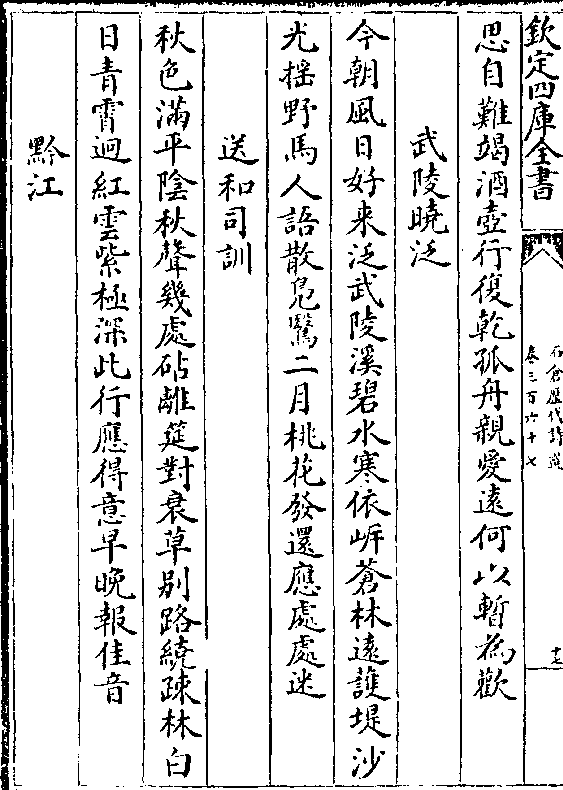 欽定四庫全書
石倉歷代詩選
卷三百六十七
十七
思自難竭酒壺行復乾孤舟親愛遠何以暫為歡
武陵曉泛
今朝風日好来泛武陵溪碧水寒依岍蒼林遠護堤沙
光揺野馬人語散鳬鷖二月桃花發還應處處迷
送和司訓
秋色滿平陰秋聲幾處砧離筵對衰草别路繞疎林白
日青霄迥紅雲紫極深此行應得意早晚報佳音
黔江